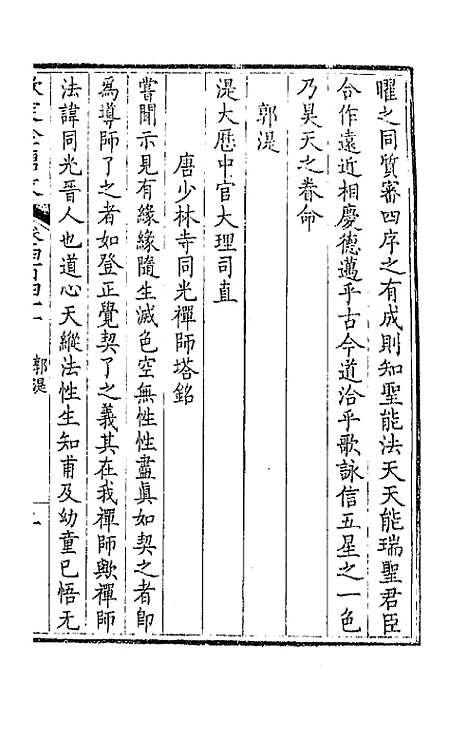 曜之同質審四序之有成則知聖能法天天能瑞聖君臣
合作遠近相慶德邁乎古今道洽乎歌詠信五星之一色
乃昊天之眷命
郭湜
湜大厯中官大理司直
唐少林寺同光禪師塔銘
嘗聞示見有緣緣隨生滅色空無性性盡真如契之者卽
爲導師了之者如登正覺契了之義其在我禪師歟禪師
法諱同光晉人也道心天縱法性生知甫及幼童已悟无
欽定全唐文 卷四百四十一 郭湜